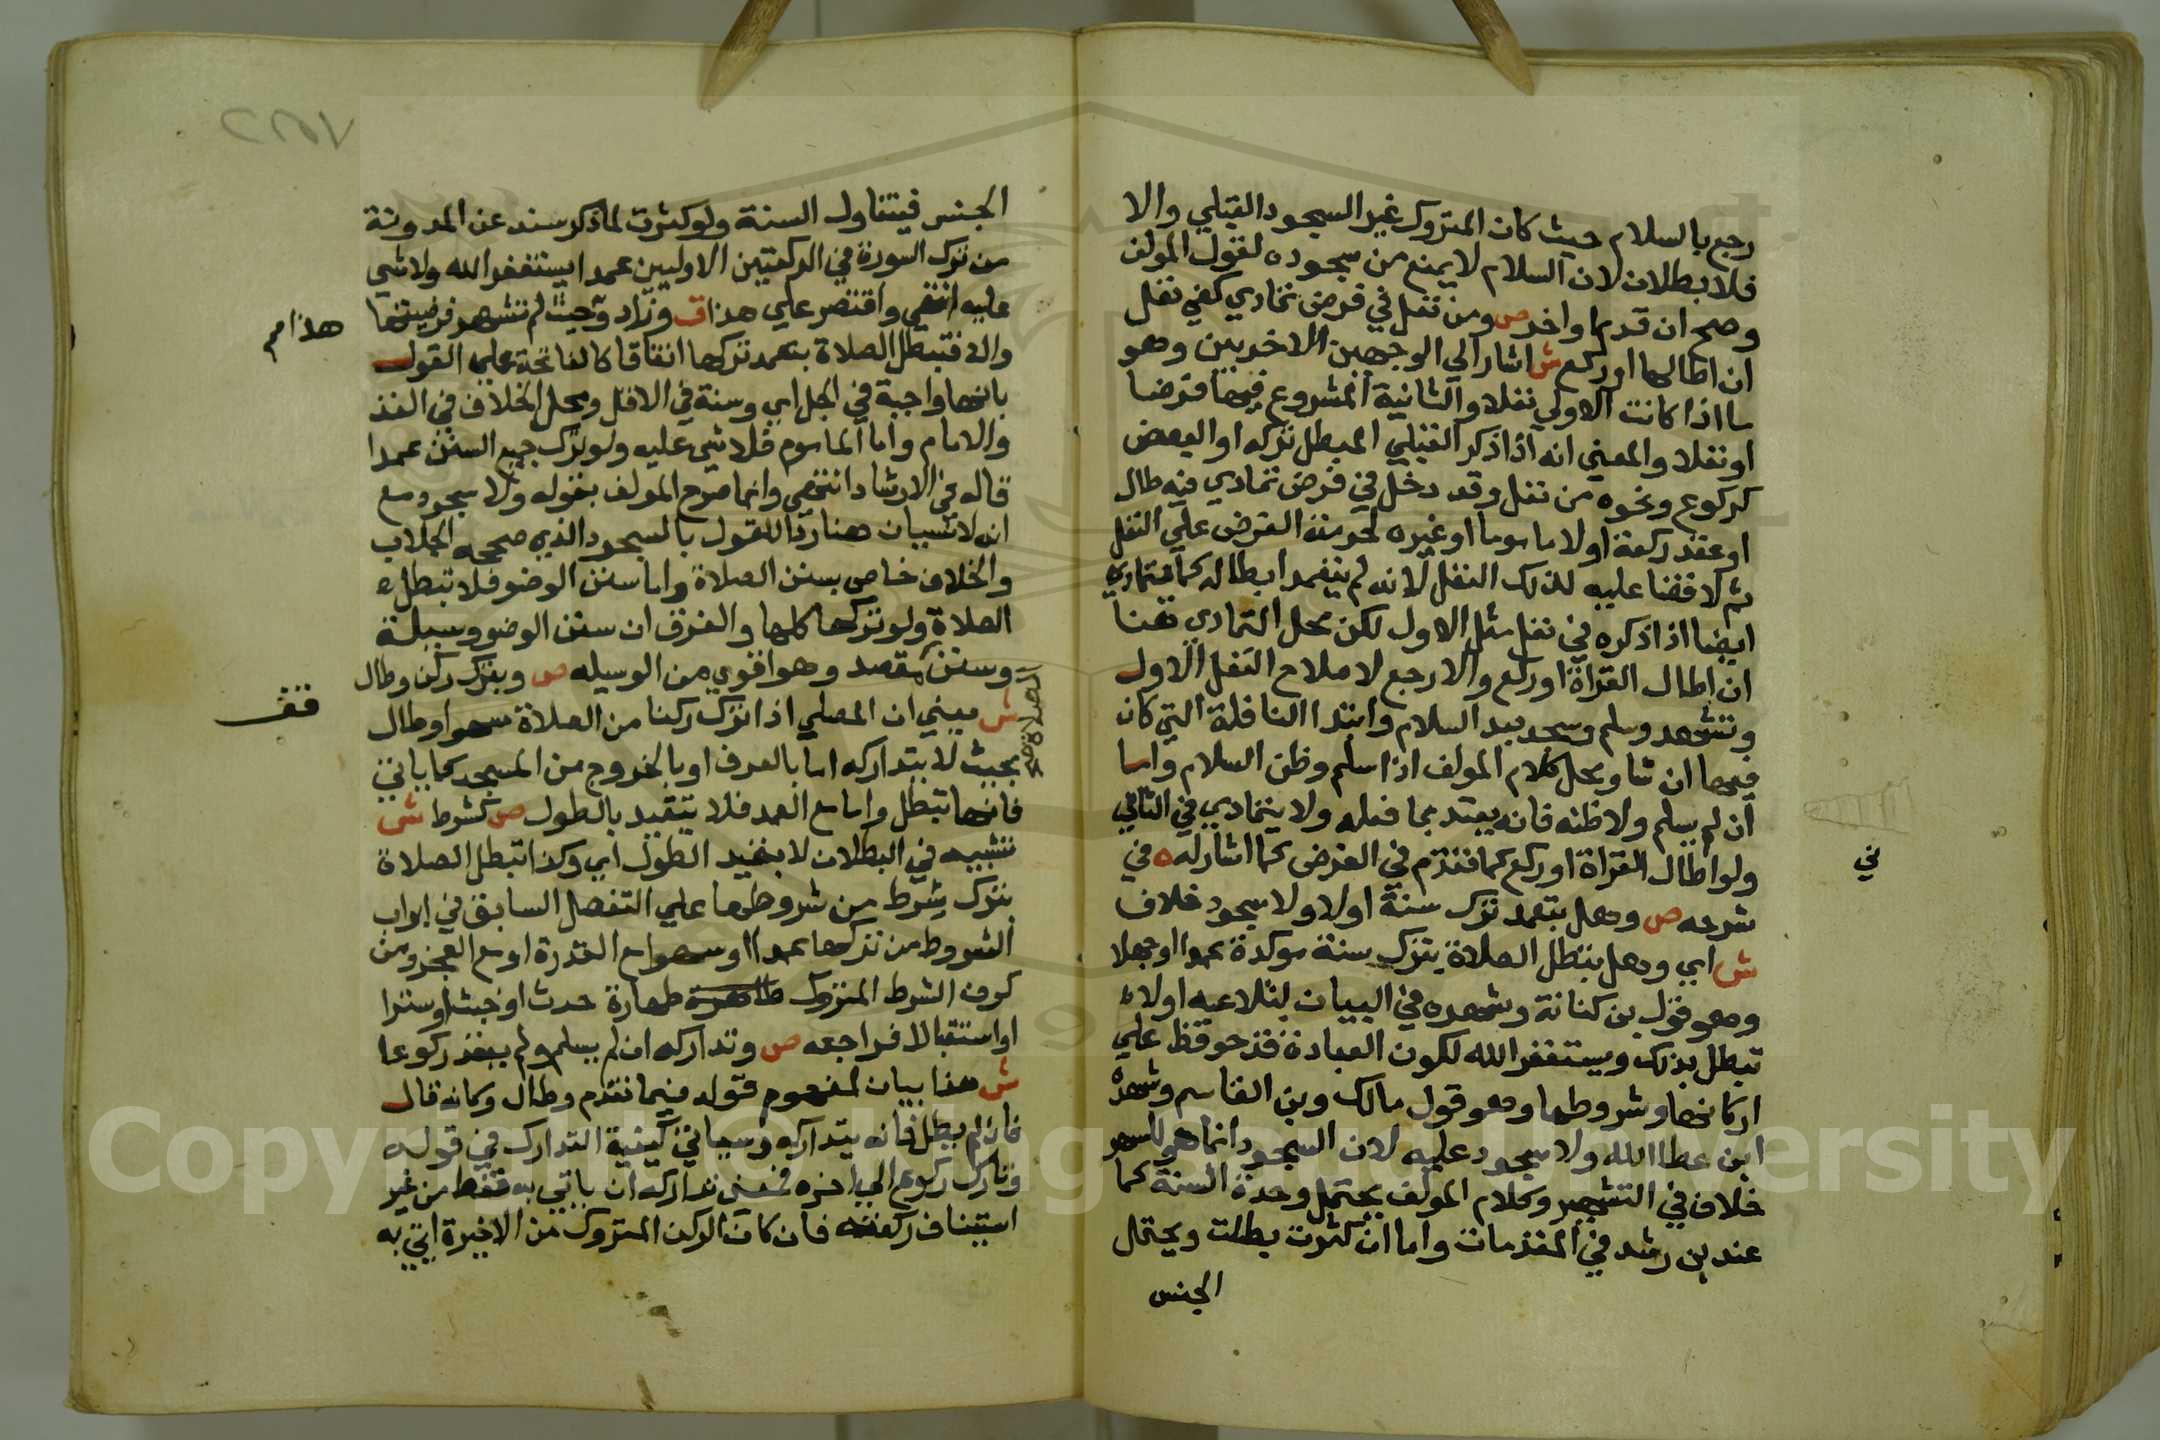 رجع بالسلام حيث كان المتروك غير السجود القبلي والا
فلا بطلان لان السلام لا يمنع من سجوده لقول المولف
وصح ان قدم او اخر ص ومن نفل في فرض تمادي كفي نفل
ان اطالها او ركع ش اشار الي الوجهين الاخرين وهو
ما اذا كانت الاولي نفلا والثانية المشروع فيها فرضا
او نفلا والمعني انه اذا ذكر القبلي المبطل تركه او البعض
كركوع ونحوه من نفل وقد دخل في فرض تمادي فيه طال
او عقد ركعة او لا ماموما او غيره لحرمة الفرض علي النفل
ثم لا قضا عليه لذلك النفل لانه لم يتعمد ابطاله كما يتمادي
ايضا اذا ذكره في نفل مثل الاول لكن محل التمادي هنا
ان اطال القراة او ركع والا رجع لاصلاح النفل الاول
وتشهد وسلم وسجد بعد السلام وابتدا النافلة التي كان
فيها ان شا ومحل كلام المولف اذا سلم وظن السلام واما
ان لم يسلم ولا ظنه فانه يعتد بما فعله ولا يتمادي في الثاني
ولو اطال القراة او ركع كما تقدم في الفرض كما اشار له ه في
شرحه ص وهل بتعمد ترك سنة اولا ولا سجود خلاف
ش اي وهل تبطل الصلاة بترك سنة موكدة عمدا او جهلا
وهو قول بن كنانة وشهره في البيان لتلاعبه او لا
تبطل بذلك ويستغفر الله لكون العبادة قد حوفظ علي
اركانها وشروطها وهو قول مالك وبن القاسم وشهره
ابن عطا الله ولا سجود عليه لان السجود انما هو للسهو
خلاف في التشهير وكلام المولف يحتمل وحدة السنة كما
عند بن رشد في المقدمات واما ان كثرت بطلت ويحتمل
الجنس
في
الجنس فيتناول السنة ولو كثرت لما ذكر سند عن المدونة
من ترك السورة في الركعتين الاوليين عمدا يستغفر الله ولا شي
عليه انتهي واقتصر علي هذا ق وزاد وحيث لم تشتهر فرضيتها
والا فتبطل الصلاة بتعمد تركها اتفاقا كالفاتحة علي القول
بانها واجبة في الجل اي وسنة في الاقل ومحل الخلاف في الفذ
والامام واما الماموم فلا شي عليه ولو ترك جميع السنن عمدا
قاله في الارشاد انتهي وانما صرح المولف بقوله ولا سجود مع
انه لا سيبان هنا ردا للقول بالسجود الذي صححه الجلاب
والخلاف خاص بسنن الصلاة واما سنن الوضو فلا تبطل
الصلاة ولو تركها كلها والفرق ان سنن الوضو وسيلة
وسنن مقصد وهو اقوي من الوسيله ص وبترك ركن وطال
الصلاة صح
ش يعني ان المصلي اذا ترك ركنا من الصلاة سهوا وطال
بحيث لا يتداركه اما بالعرف او بالخروج من المسجد كما ياتي
فانها تبطل واما مع العمد فلا يتقيد بالطول ص كشرط ش
تشبيه في البطلان لا بقيد الطول اي وكذا تبطل الصلاة
بترك شرط من شروطها علي التفصل السابق في ابواب
الشروط من تركها عمدا او سهوا مع القدرة او مع العجز ومن
كون الشرط المتروك طهارة حدث او خبث او سترا
او استقبالا فراجعه ص وتداركه ان لم يسلم ولم يعقد ركوعا
ش هذا بيان لمفهوم قوله فيما تقدم وطال وكانه قال
فان لم يطل فانه يتداركه وسياتي كيفية التدارك في قوله
وتارك ركوع الي اخره فمعني تداركه ان ياتي به فقط من غير
استيناف ركعة فان كان الركن المتروك من الاخيرة اتي به
هذا م
قف